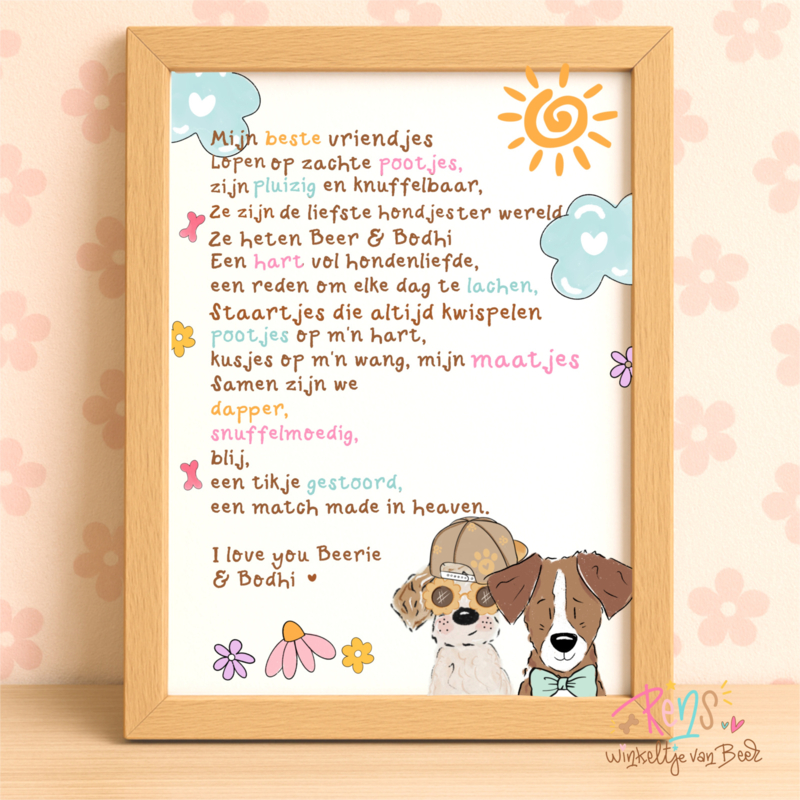 Mijn beste vriendjes
Lopen op zachte pootjes,
zijn pluizig en knuffelbaar,
Ze zijn de liefste hondjes ter wereld
Ze heten Beer & Bodhi
Een hart vol hondenliefde,
een reden om elke dag te lachen,
Staartjes die altijd kwispelen
pootjes op m'n hart,
kusjes op m'n wang, mijn maatjes
Samen zijn we
dapper,
snuffelmoedig,
blij,
een tikje gestoord,
een match made in heaven.
I love you Beerie
& Bodhi
Rens
winkeltje van Beer